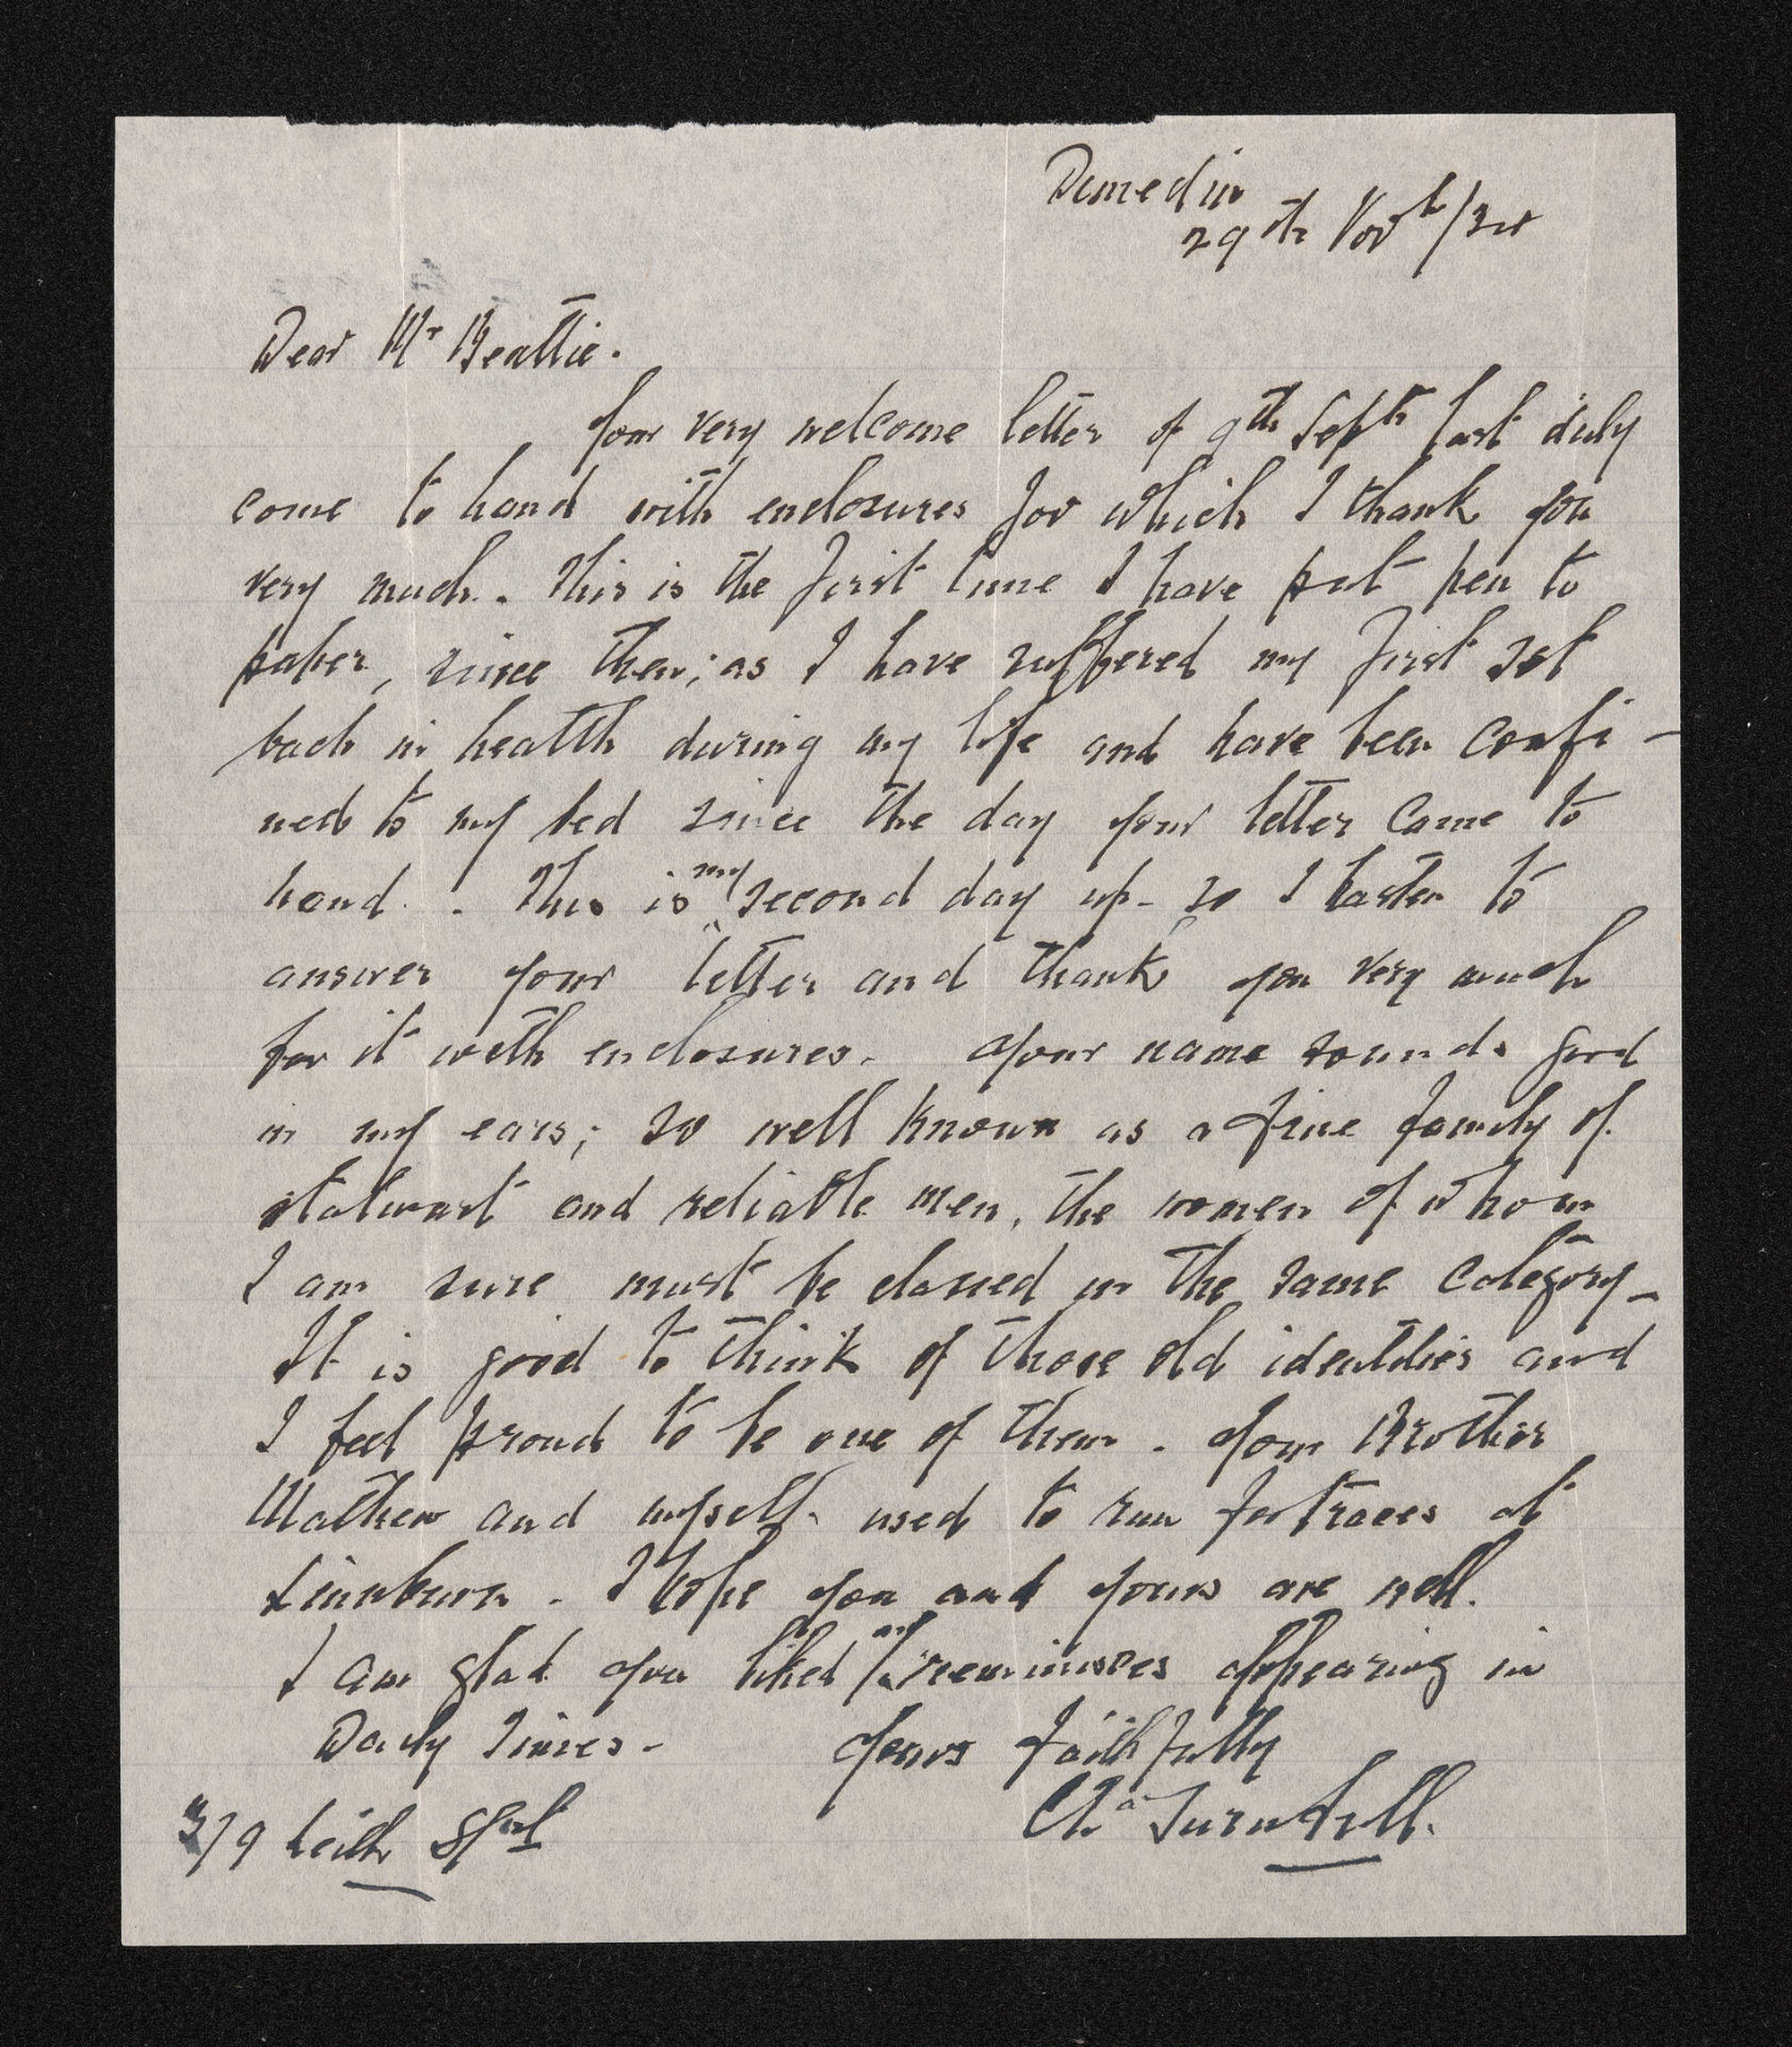 Dunedin
29th Novb/34
Dear Mr Beattie.
Your very welcome letter of 9th Septr last duly
come to hand with enclosures for which I thank you
very much. This is the first time I have put pen to
paper, since then; as I have suffered my first set
back in health during my life and have been confi-
ned to my bed since the day your letter came to
hand. This is my second day up - so I hasten to
answer your letter and thank you very much
for it with enclosures. Your name sounds good
in my ears; so well known as a fine family of
stalwart and reliable men, the women of whom
I am sure must be classed in the same category -
It is good to think of those old identities and
I feel proud to be one of them. Your Brother
Mathew and myself used to run footraces at
Linnburn. I hope you and yours are well.
I am glad you liked my reminisces appearing in
Daily Times - Yours faithfully
Chas Turnbull.
Leith